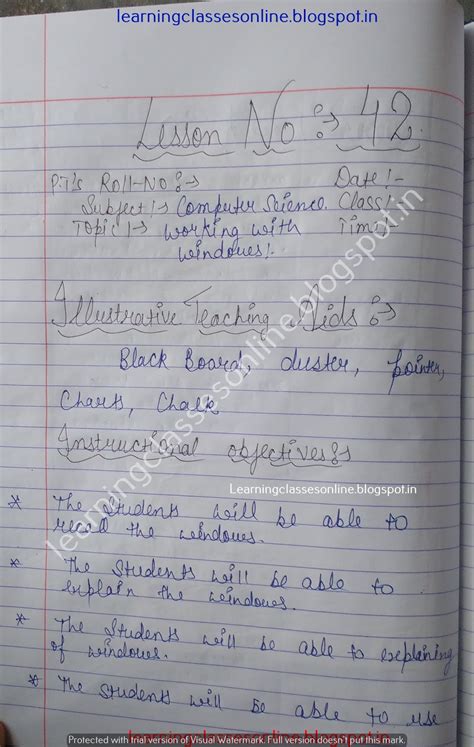 learningclassesonline.blogspot.in
Lesson No :→ 42.
P.T's Roll-No :→ Date :-
Subject :→ Computer Science. Class :-
Topic :→ Working with Time :-
windoues :-
Illustrative Teaching Aids :→
Black Board, duster, pointer,
Charts, Chalk
Instructional objectives :→
Learningclassesonline.blogspot.in
* The Students will be able to
recall the windoues.
* The Students will be able to
explain the windoues.
* The Students will be able to explaining
of windoues.
* The Students will be able to use
learningclassesonline.blogspot.in
Protected with trial version of Visual Watermark. Full version doesn't put this mark.
learningclassesonline.blogspot.in